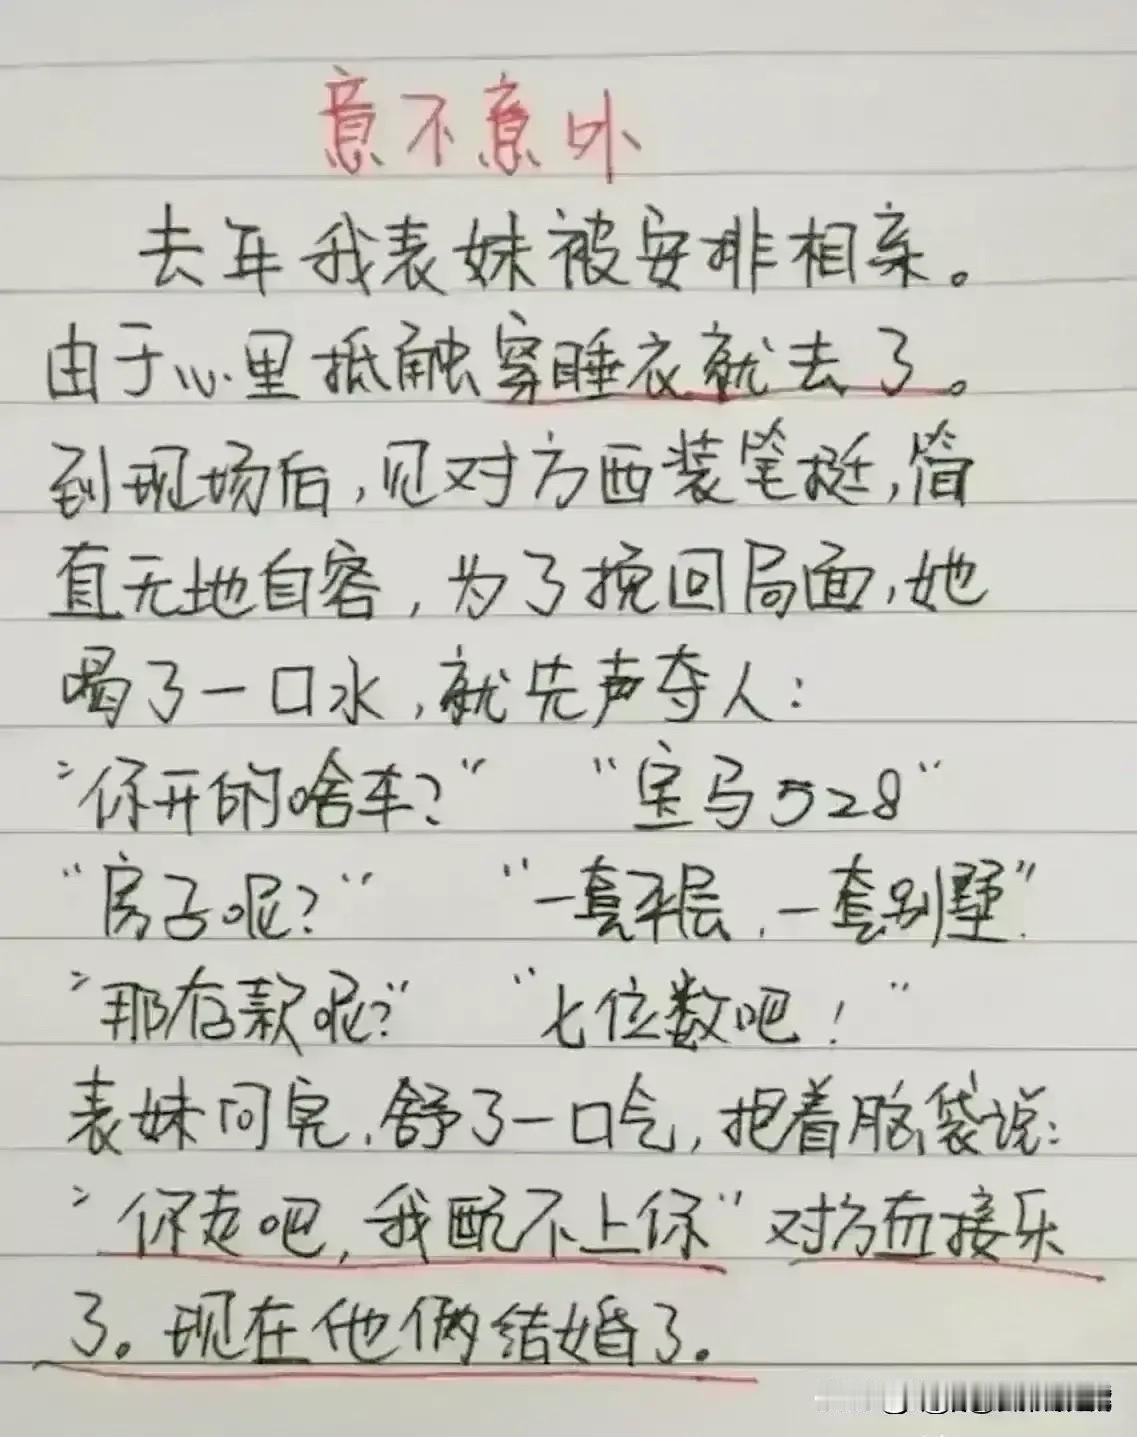 意不意外
去年我表妹被安排相亲。
由于心里抵触穿睡衣就去了。
到现场后,见对方西装笔挺,简
直无地自容,为了挽回局面,她
喝了一口水,就先声夺人:
"你开的啥车?" "宝马528"
"房子呢?" "一套平层,一套别墅".
"那存款呢?" "七位数吧!"
表妹问完,舒了一口气,抱着脑袋说:
"你走吧,我配不上你"对方直接乐
了。现在他俩结婚了。